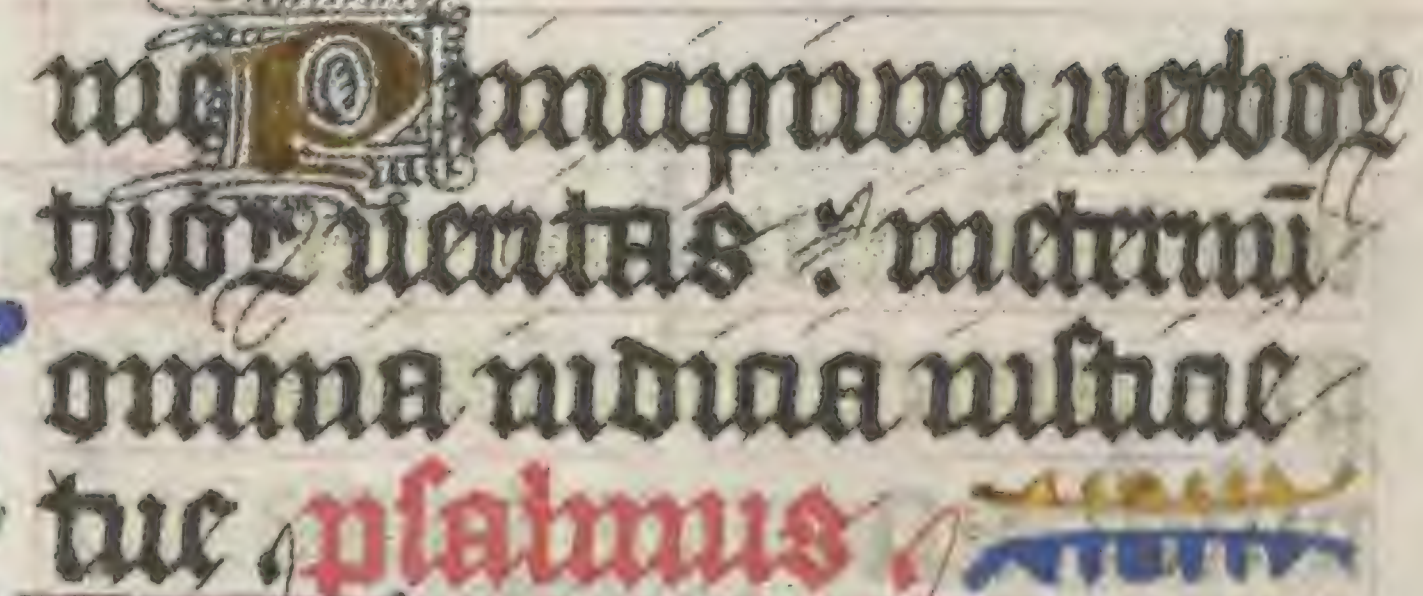 me Principium uerboꝝ
tuoꝝ ueritas : ineternū
omnia iudicia iusticie
tue . psalmus .